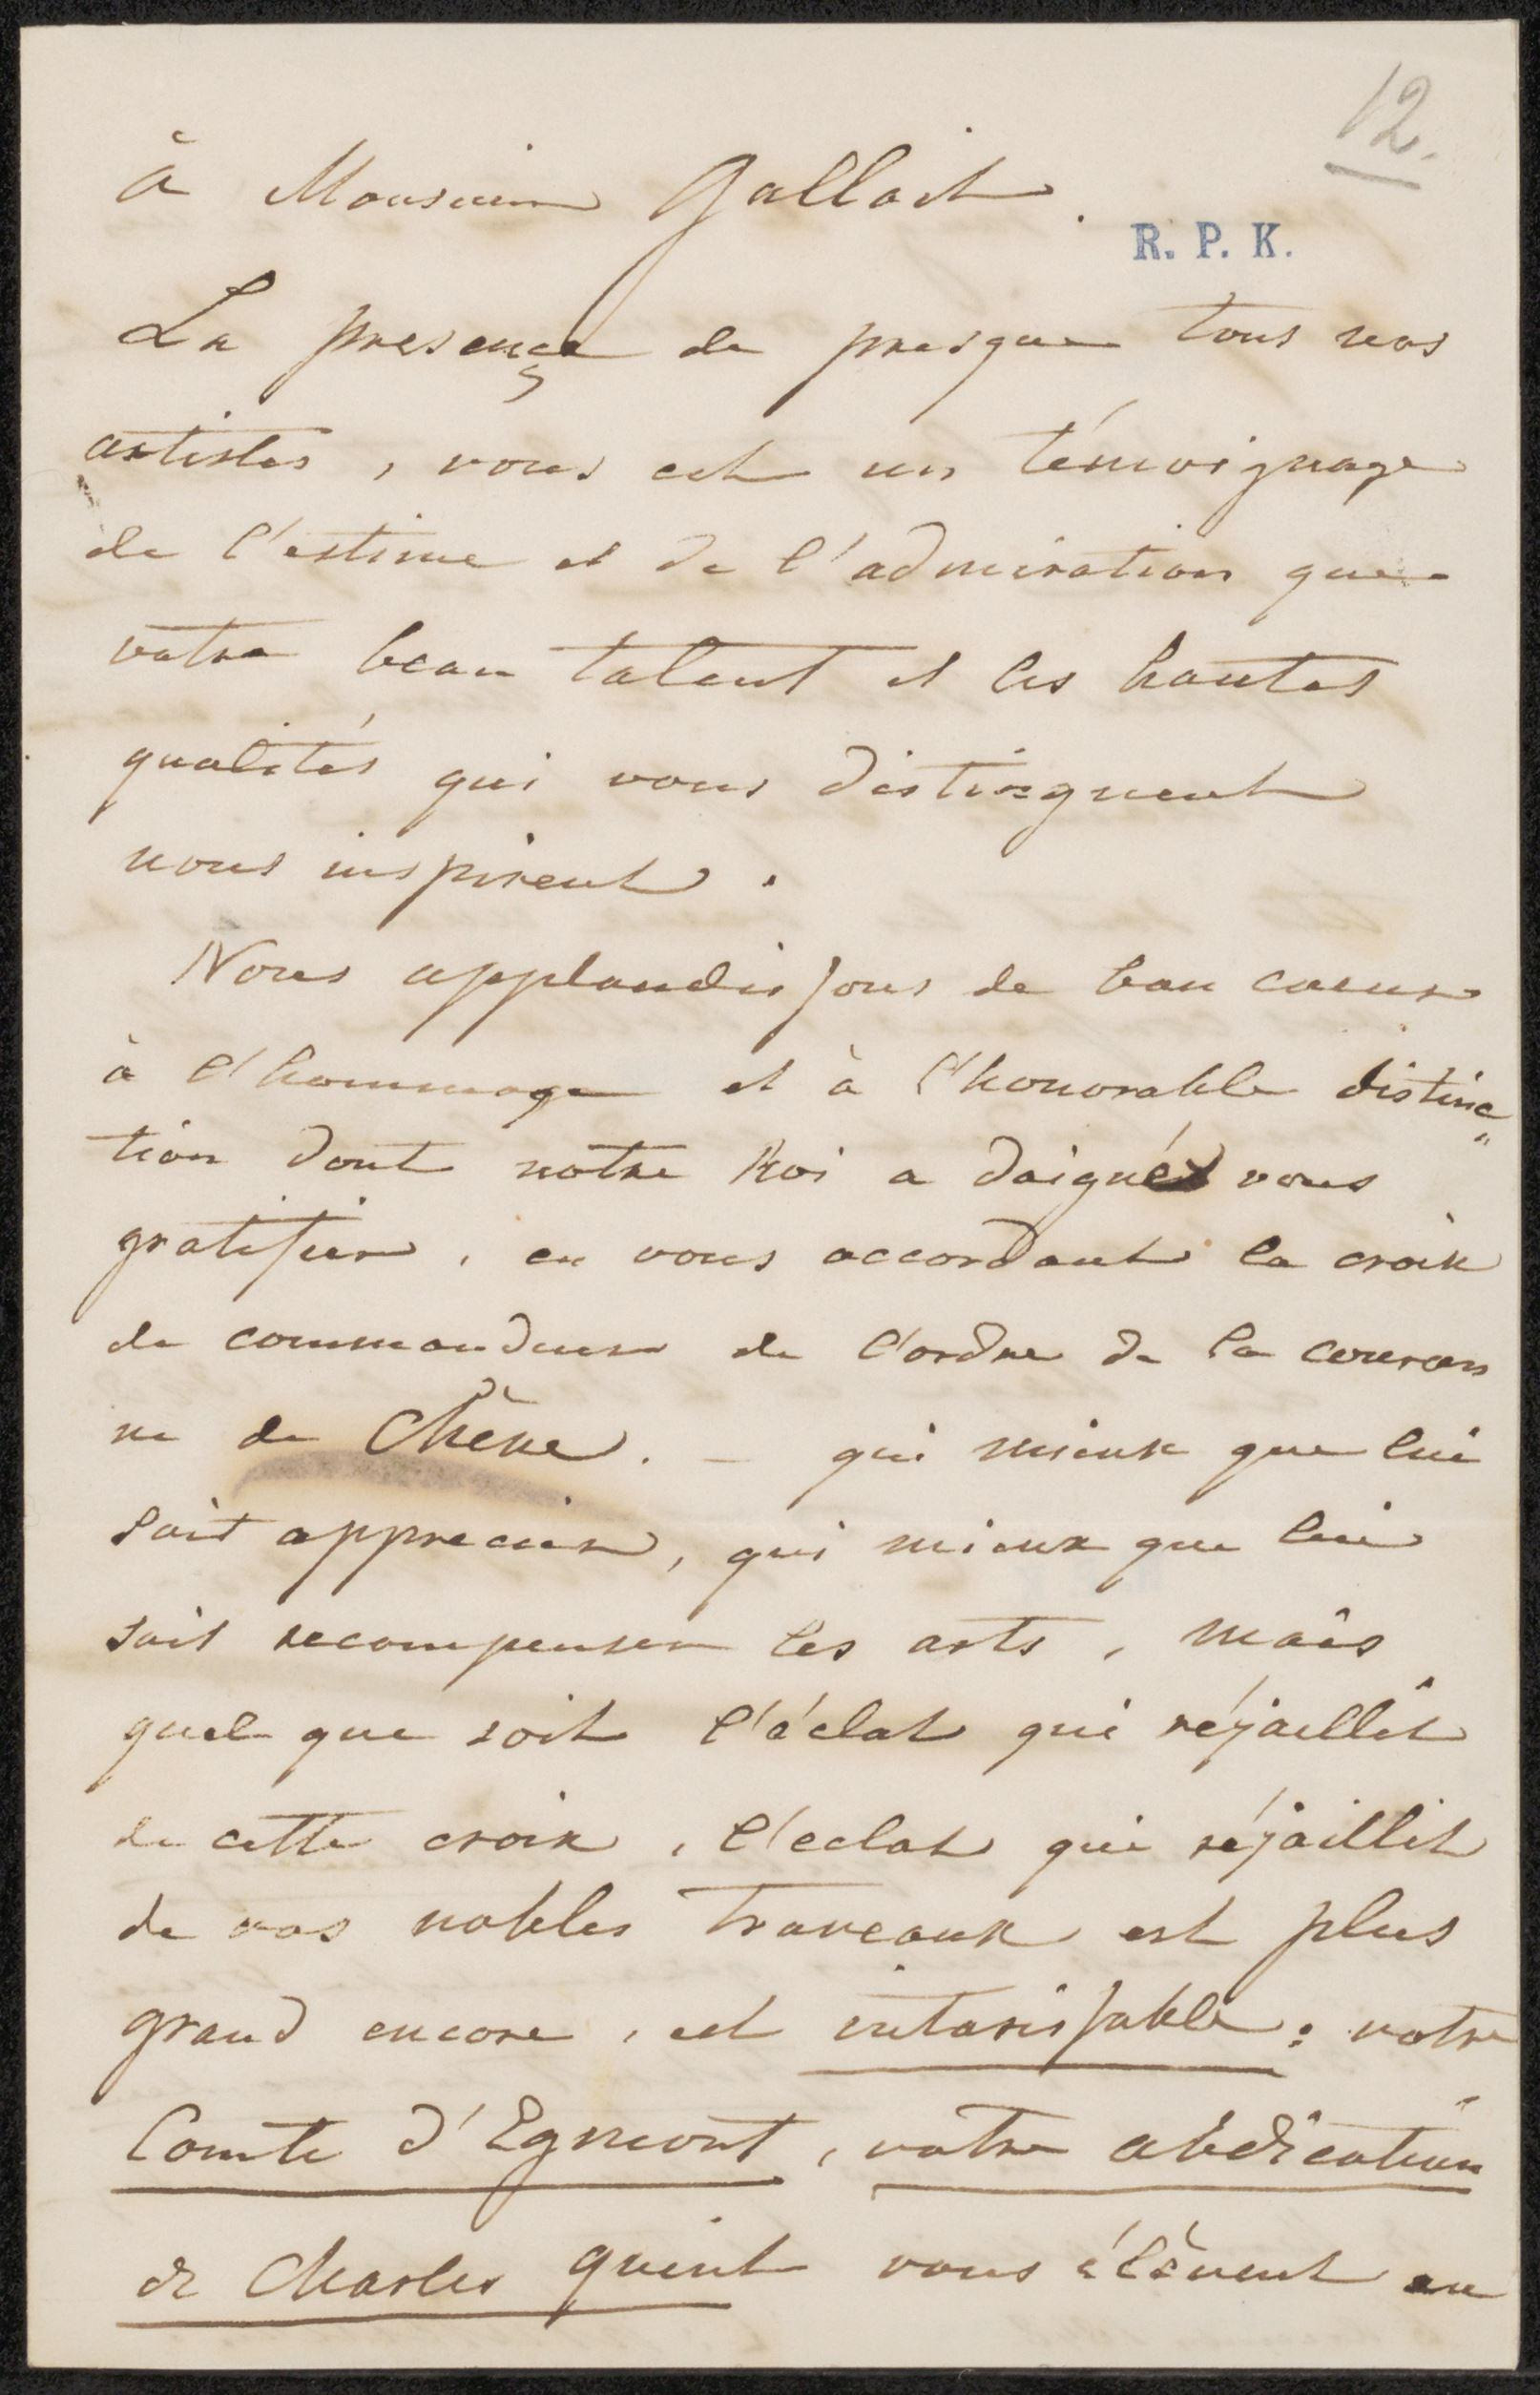 12.
à Monsieur Gallait.
R. P. K.
La presence de presque tous nos
artistes, vous est un témoignage
de l'estime et de l'admiration que
votre beau talent et les hautes
qualités qui vous distinguent
nous inspirent.
Nous applaudissons de bon coeur
à l'hommage et à l'honorable distinc"
tion dont notre Roi a daigné vous
gratifier, en vous accordant la croix
de commandeur de l'ordre de la couron
ne de Chêne. - qui mieux que lui
sait apprecier, qui mieux que lui
sait recompenser les arts, mais
quel que soit l'éclat qui réjaillit
de cette croix, l'eclat qui réjaillit
de vos nobles traveaux est plus
grand encore, est intarissable: votre
Comte d'Egmont, votre abdication
de Charles quint vous élèvent au